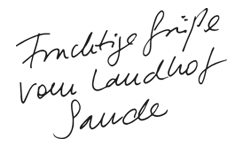 Fruchtige Grüße
vom Landhof
Sande